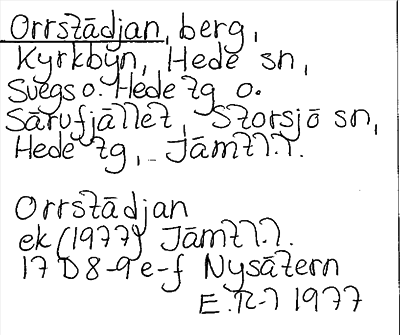 Orrstädjan, berg,
Kyrkbyn, Hede sn,
Svegs o. Hede tg o.
Särvfjället, Storsjö sn,
Hede tg, Jämtl.l.
Orrstädjan
ek (1977) Jämtl.l.
17 D 8-9 e-f Nysätern
1977